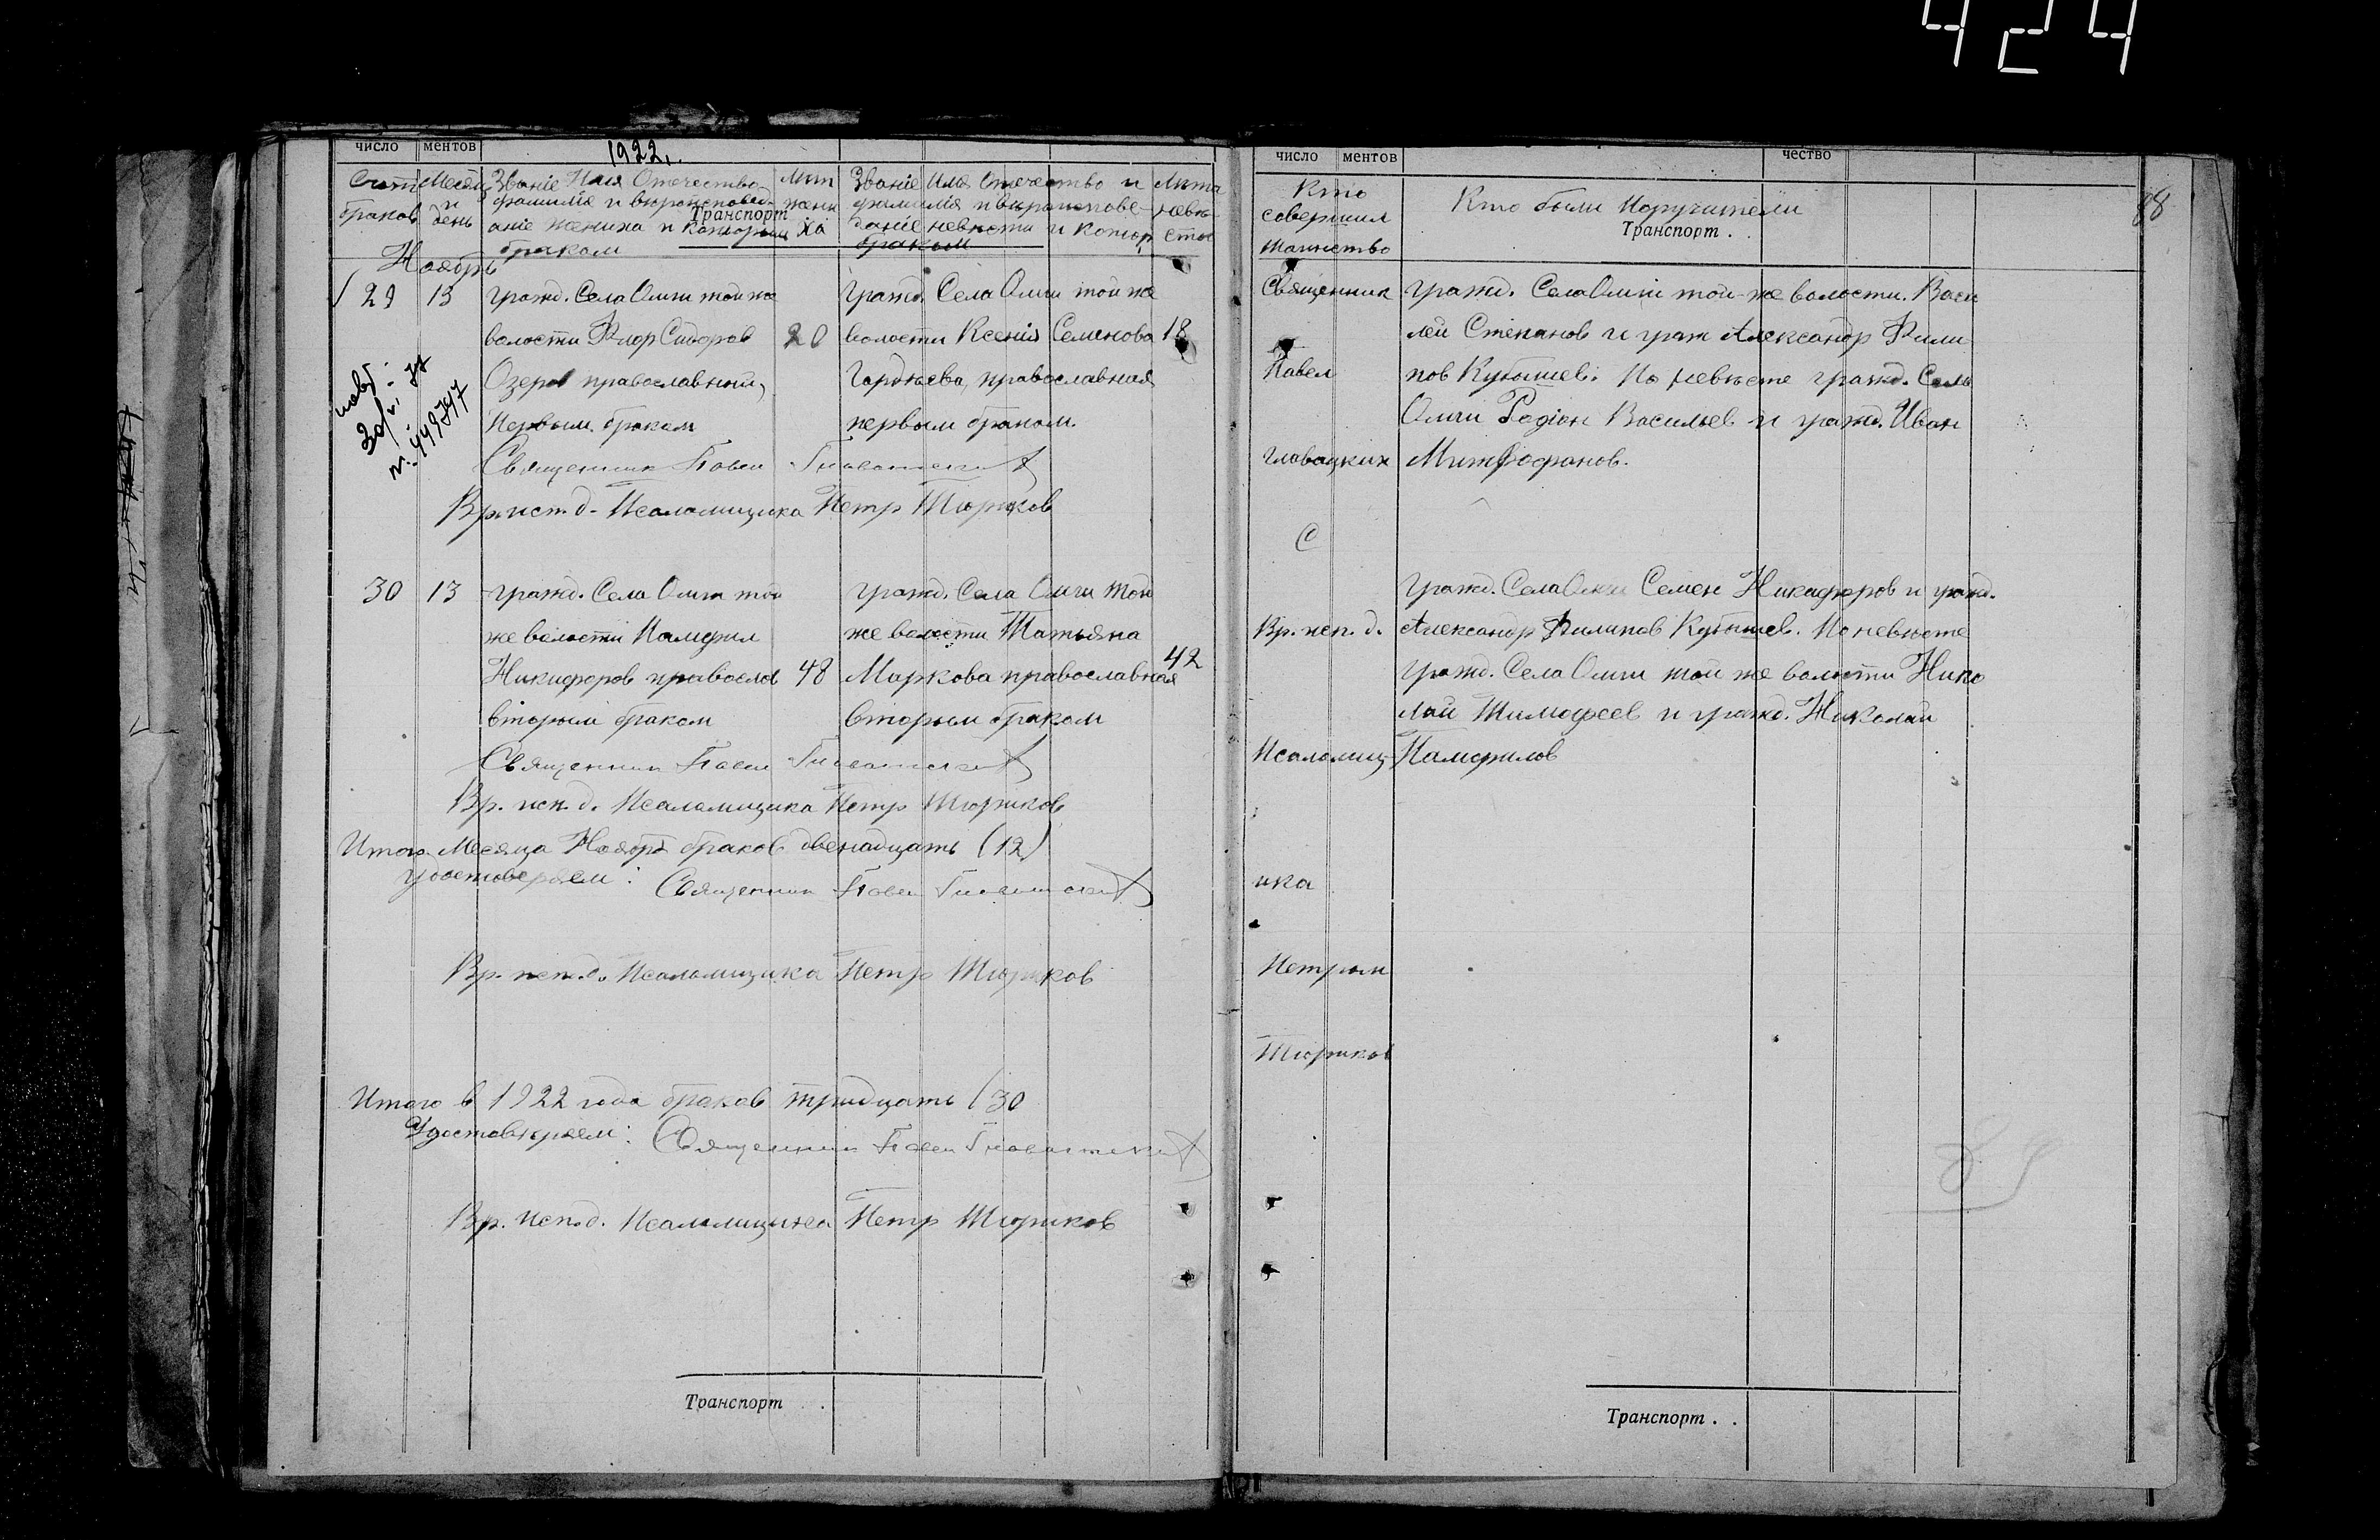 424
число ментов
1922.
Счет браков
Месяц и день
Званіе Имя Отечество
фамилія и вероисповед-
аніе жениха и которым
браком
Транспорт
Лет жени ха
Званіе Имя Отечество и
фамилія и вероисповѣ-
даніе невѣсты и котор
браком
Лѣта невѣ сты
Ноябрь
29 13 гражд. Села Олии той же
волости Флор Сидоров 20
Озеров православный,
первым браком
гражд. Села Олии той же
волости Ксенія Семенова 18
Гордѣева, православная
первым браком.
№ 449747
Священник Павел Гловатских
Вр. исп. д. Псаломщика Петр Тюриков
30 13 гражд. Села Олии той
же волости Памфил
Никифоров правосл 48
вторым браком
гражд. Села Олии той
же волости Татьяна
Маркова православная 42
вторым браком
Священник Павел Гловатских
Вр. исп. д. Псаломщика Петр Тюриков
Итого Месяца Ноября браков двенадцать (12)
Удостоверяем: Священник Павел Гловатских
Вр. исп. д. Псаломщика Петр Тюриков
Итого в 1922 года браков тридцать (30
Удостовѣряем: Священник Павел Гловатских
Вр. исп. д. Псаломщика Петр Тюриков
Транспорт .
число ментов чество
88
Кто
совершил
таинство
Кто были Поручители
Транспорт . .
Священник
Павел
Гловацких
С
Вр. исп. д.
Псаломщ-
ика
Петром
Тюриков
гражд. Села Олии той-же волости. Васи
лей Степанов и граж Александр Фили
пов Кубышев. По невѣсте гражд. Села
Олии Родіон Васильев и гражд. Иван
Митрофанов.
гражд. Села Олии Семен Никифоров и гражд.
Александр Филипов Кубышев. По невѣсте
гражд. Села Олии той же волости Нико
лай Тимофеев и гражд. Николай
Памфилов
89
Транспорт . .